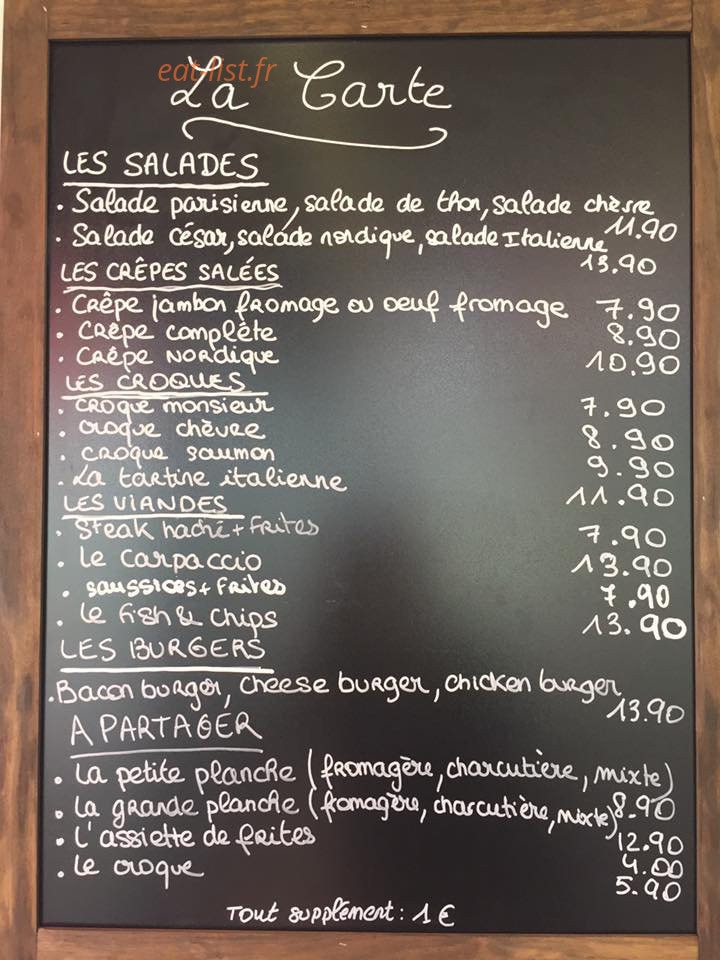 eat-list.fr
La Carte
LES SALADES
. Salade parisienne, salade de thon, salade chèvre
11.90
. Salade césar, salade nordique, salade Italienne
13.90
LES CRÊPES SALÉES
. Crêpe jambon fromage ou oeuf fromage 7.90
. Crêpe complète 8.90
. Crêpe Nordique 10.90
LES CROQUES
. croque monsieur 7.90
. croque chèvre 8.90
. croque saumon 9.90
. La tartine italienne 11.90
LES VIANDES
. Steak haché + frites 7.90
. Le carpaccio 13.90
. saussices + frites 7.90
. Le fish & chips 13.90
LES BURGERS
. Bacon burger, cheese burger, chicken burger
13.90
A PARTAGER
. La petite planche (fromagère, charcutière, mixte)
8.90
. La grande planche (fromagère, charcutière, mixte)
12.90
. L'assiette de frites 4.00
. Le croque 5.90
Tout supplément : 1 €